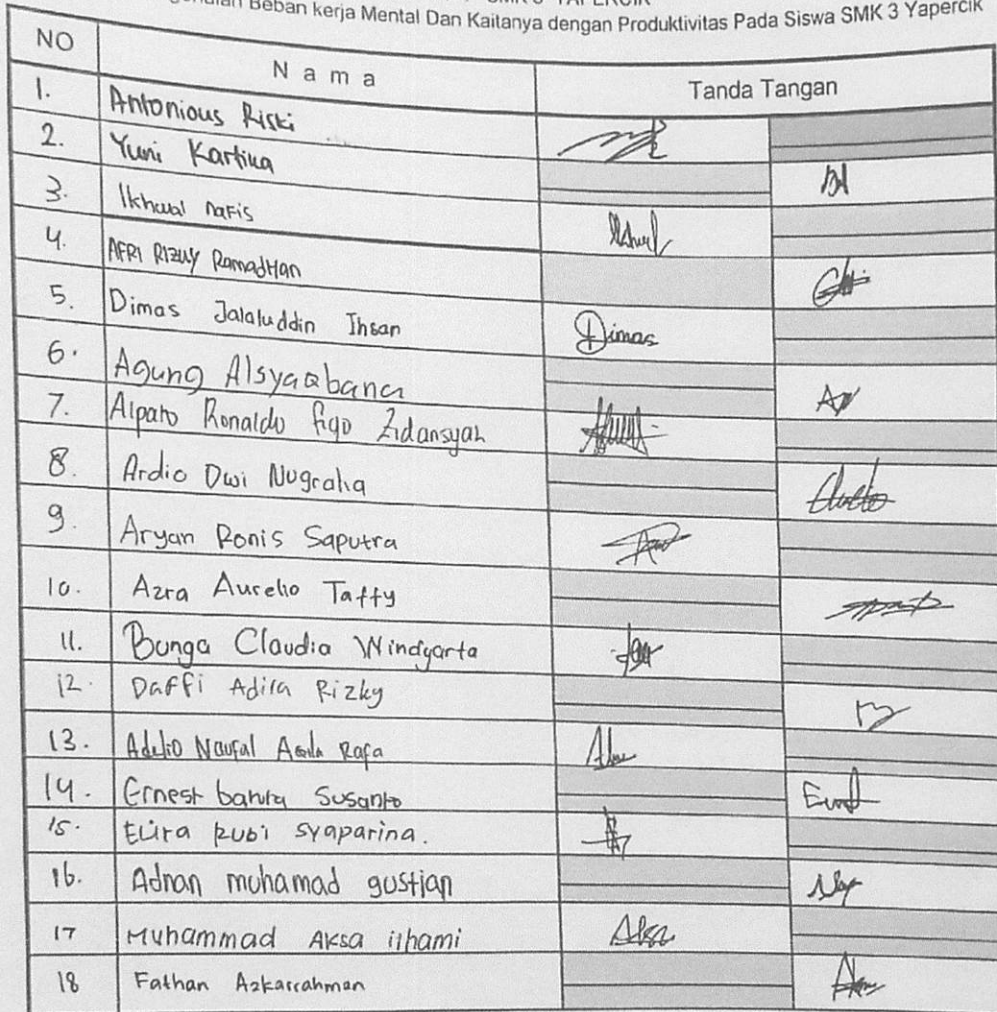 SMK 3 YAPERCIK
Beban kerja Mental Dan Kaitanya dengan Produktivitas Pada Siswa SMK 3 Yapercik
NO Nama Tanda Tangan
1. Antonious Riski
2. Yuni Kartika
3. Ikhwal nafis
4. AFRI RIZUY RamadHan
5. Dimas Jalaluddin Ihsan Dimas
6. Agung Alsyaabana
7. Alpato Ronaldo figo Zidansyah
8. Ardio Dwi Nugraha
9. Aryan Ronis Saputra
10. Azra Aurelio Taffy
11. Bunga Claudia Windyarta
12. Daffi Adira Rizky
13. Adelio Naufal Rafa
14. Ernest Susanto
15. Elira Rubi syaparina.
16. Adnan muhamad gustian
17 Muhammad Aksa ilhami Aksa
18 Fathan Azkarrahman